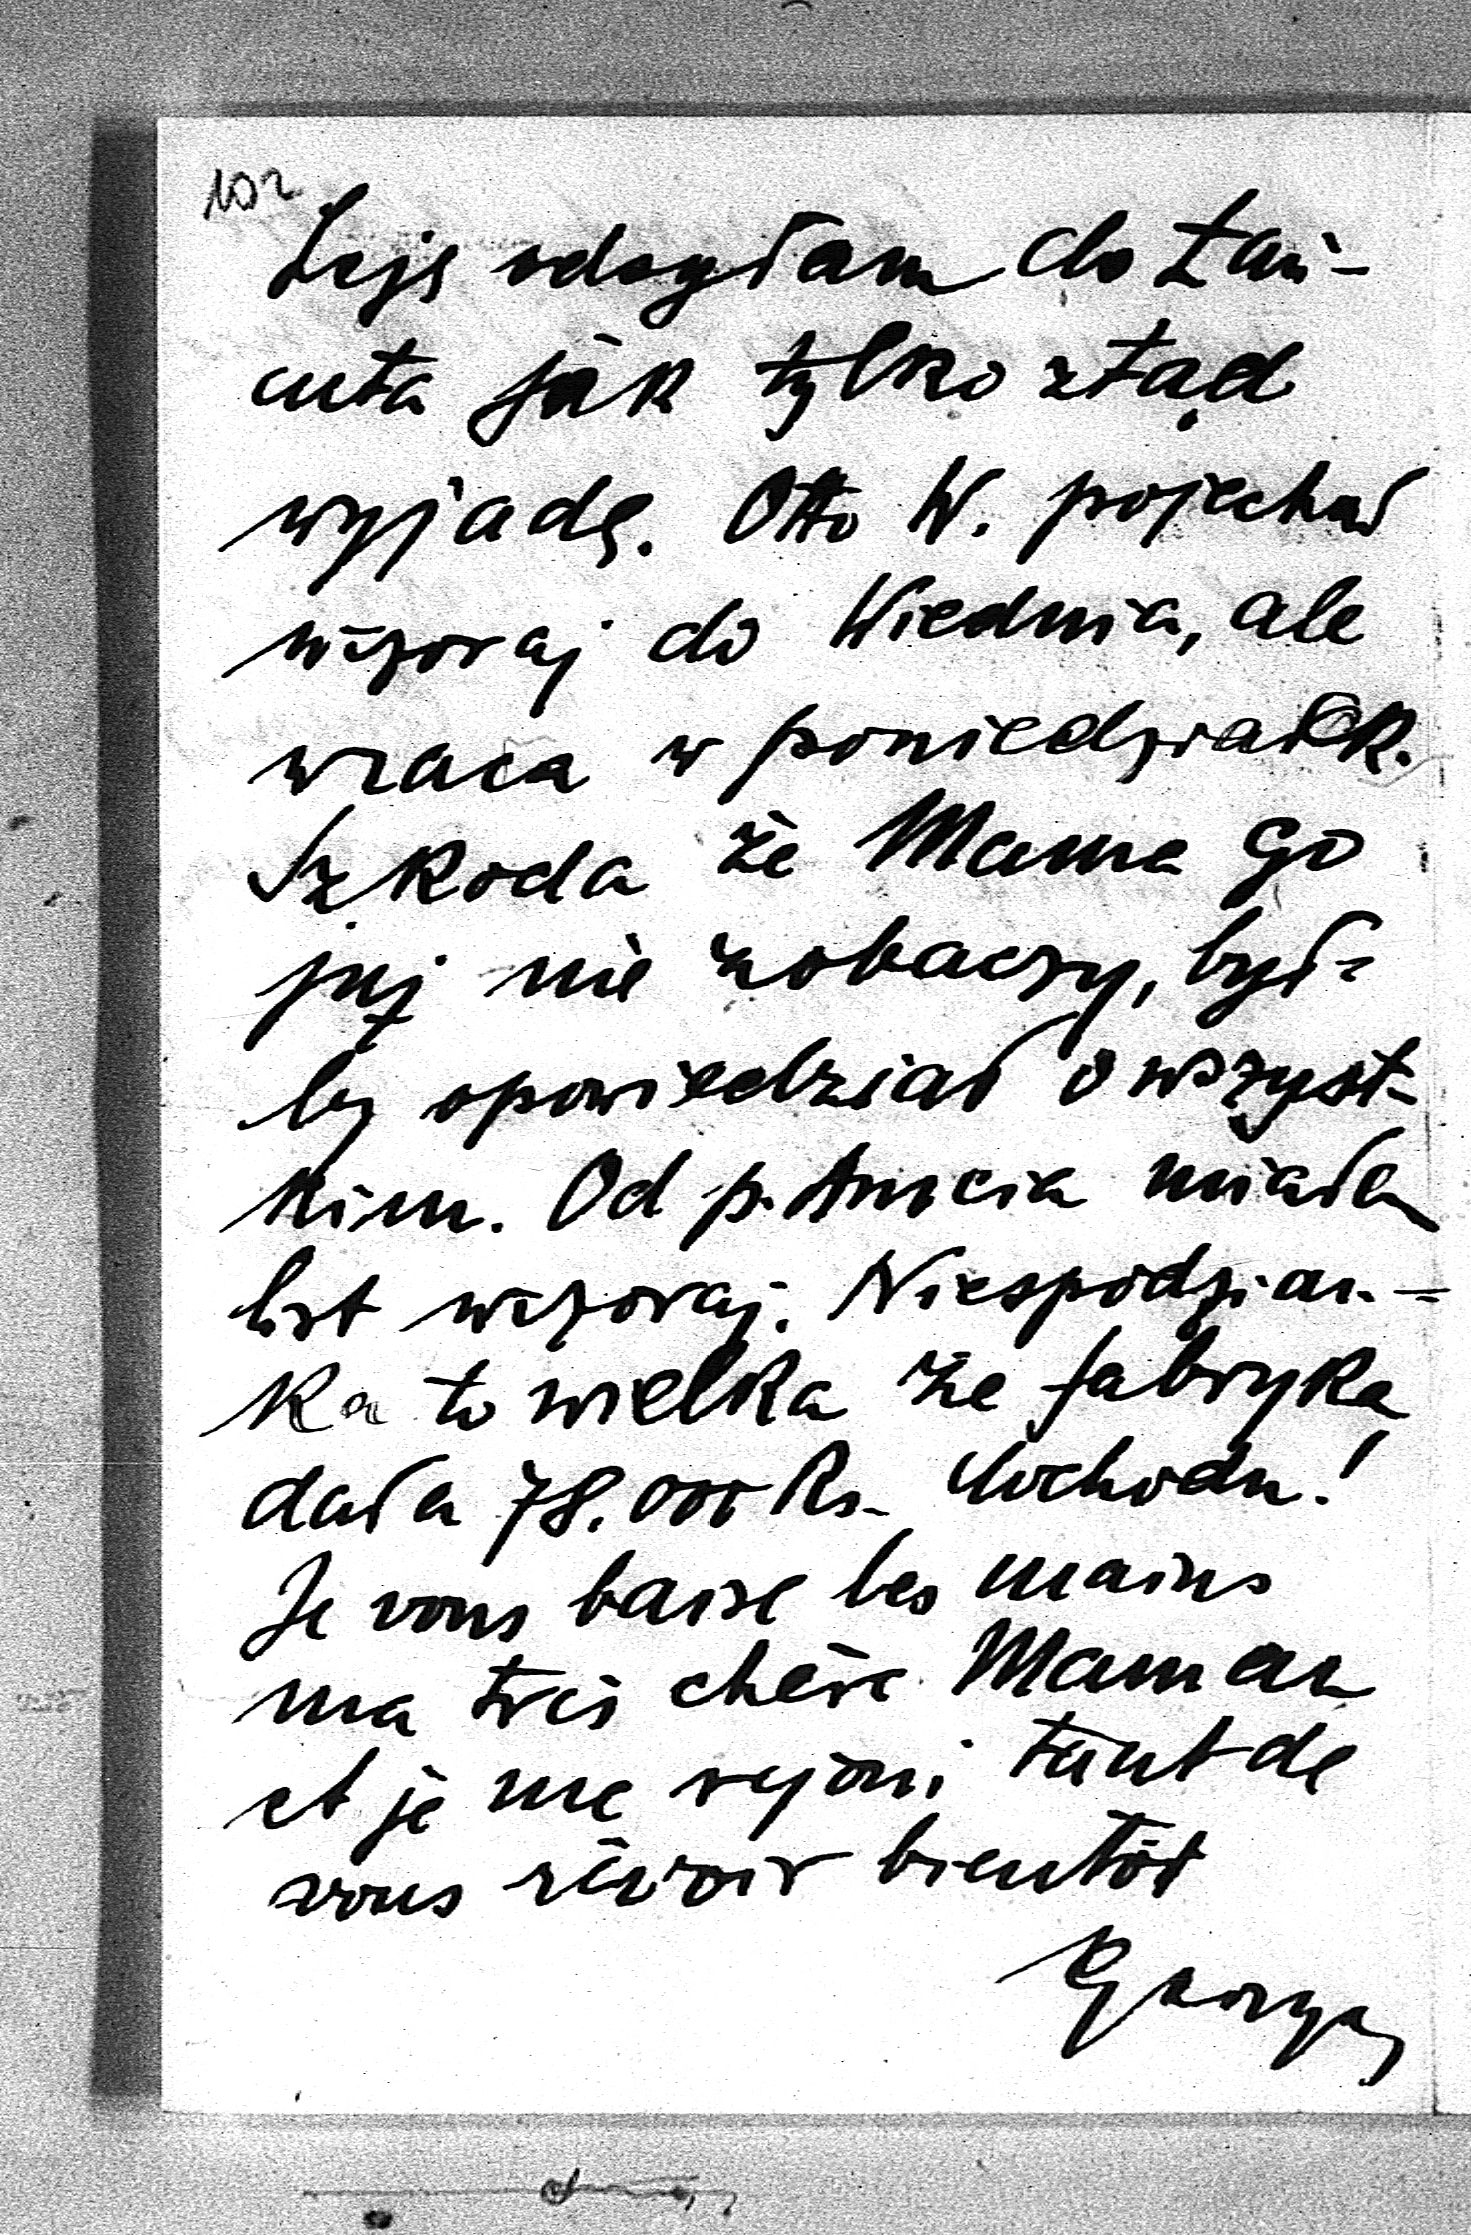 102
Leję odsyłam do Łań-
cuta jak tylko ztąd
wyjadę. Otto W. pojechał
wczoraj do Wiednia, ale
wraca w poniedziałek.
Szkoda że Mama go
już nie zobaczy, był-
by opowiedział o wszyst-
kim. Od p. miała
list wczoraj. Niespodzian-
ka to wielka że fabryka
dała 78.000 Rs. dochodu!
Je vous baise les mains
ma très chère Maman
et je me rejoui tant de
vous révoir bientôt